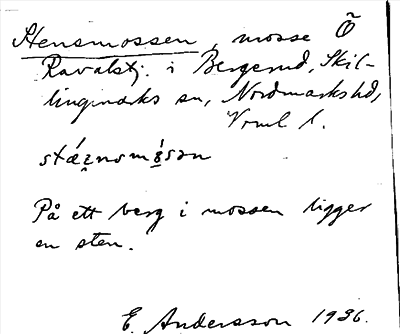 Stensmossen, mosse Ö
Ravalstj. i Bergerud, Skil-
lingmarks sn, Nordmarks hd,
Vrml l.
På ett berg i mossen ligger
en sten.
E. Andersson 1936.